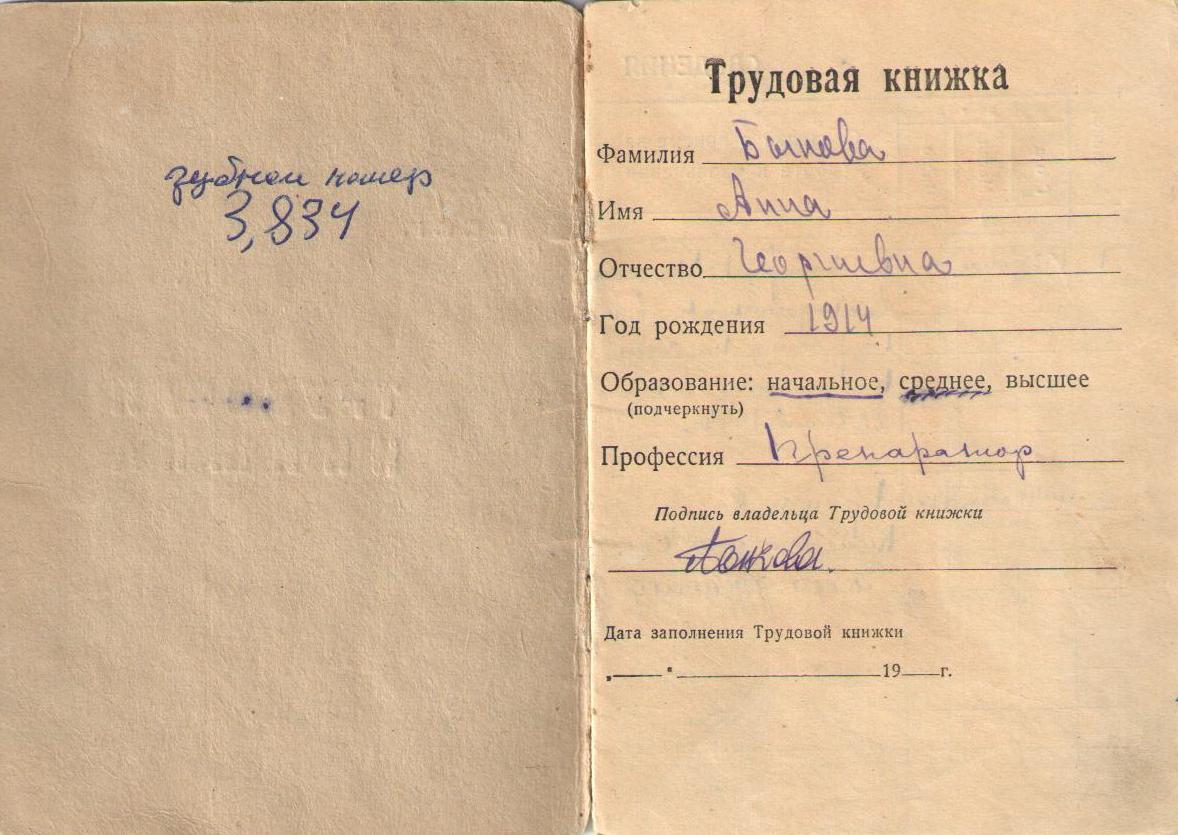 зубной номер
3,834
Трудовая книжка
Фамилия
Имя Анна
Отчество Георгиевна
Год рождения 1914
Образование: начальное, среднее, высшее
(подчеркнуть)
Профессия Препаратор
Подпись владельца Трудовой книжки
Дата заполнения Трудовой книжки
„ “ 19 г.